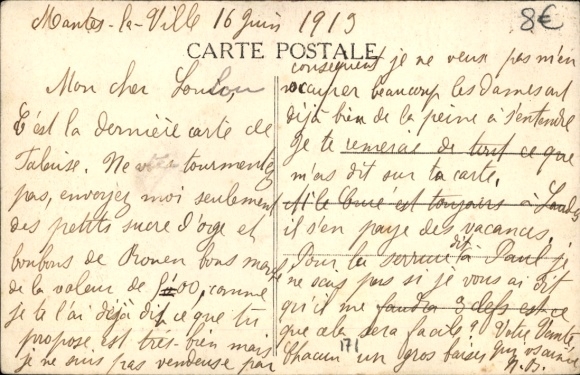 Mantes-la-Ville 16 Juin 1913
8€
CARTE POSTALE
Mon cher Loulou,
C'est la dernière carte de
Falaise. Ne vous tourmentez
pas, envoyez moi seulement
des petits sucre d'oge et
bonbons de Rouen bons marché
de la valeur de 1f00, comme
je te l'ai déjà dit ce que tu
propose est très-bien mais
je ne suis pas vendeuse par
conséquent je ne veux pas m'en
occuper beaucoup les Dames ont
déjà bien de la peine à s'entendre
Je te remercie de tout ce que
m'as dit sur ta carte.
M. le Curé est toujours à
il s'en paye des vacances.
Pour la serrure dit à Paul j
ne sais pas si je vous ai dit
qu'il me faudra 3 clefs est-ce
que cela sera facile ? Votre Tante
Chacun un gros baiser qui vs aime
171